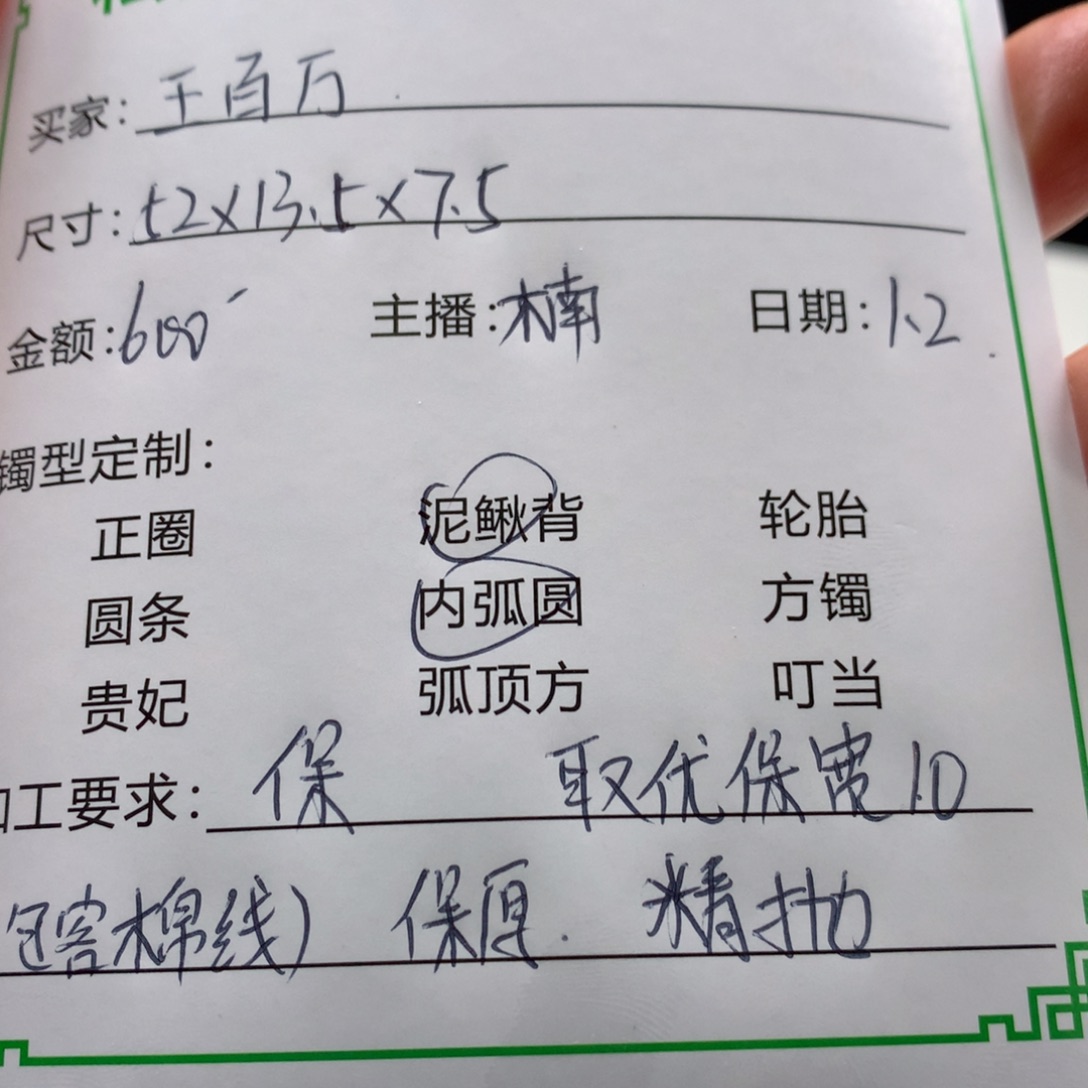 买家：王百万
尺寸：52×13.5×7.5
金额：600 主播：楠 日期：1.2
镯型定制：
正圈 泥鳅背 轮胎
圆条 内弧圆 方镯
贵妃 弧顶方 叮当
加工要求：保 取优保宽10
包容棉线） 保厚. 精抛